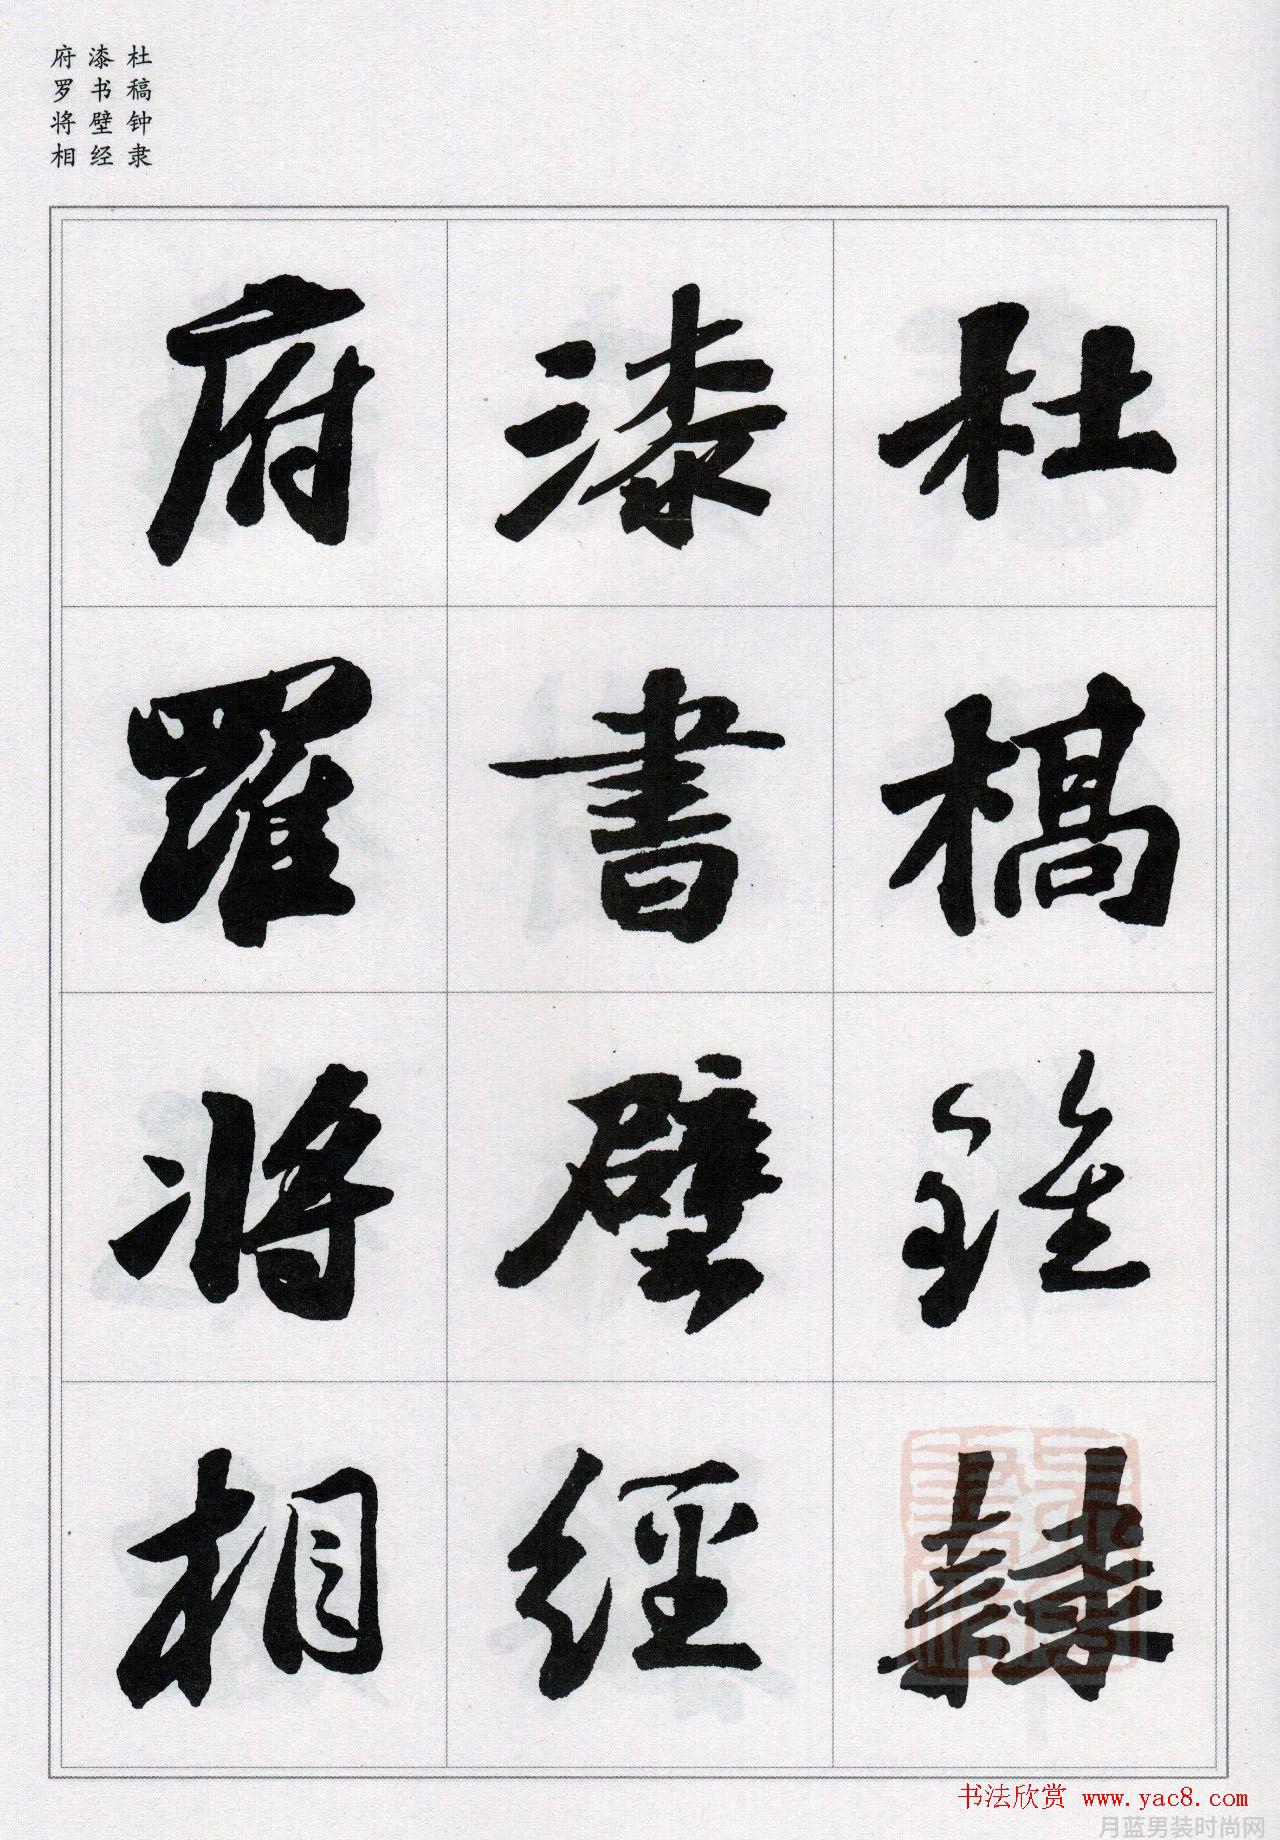 杜稿钟隶
漆书壁经
府罗将相
杜槁鍾隸
漆書壁經
府羅將相
书法欣赏 www.yac8.com
月蓝男装时尚网